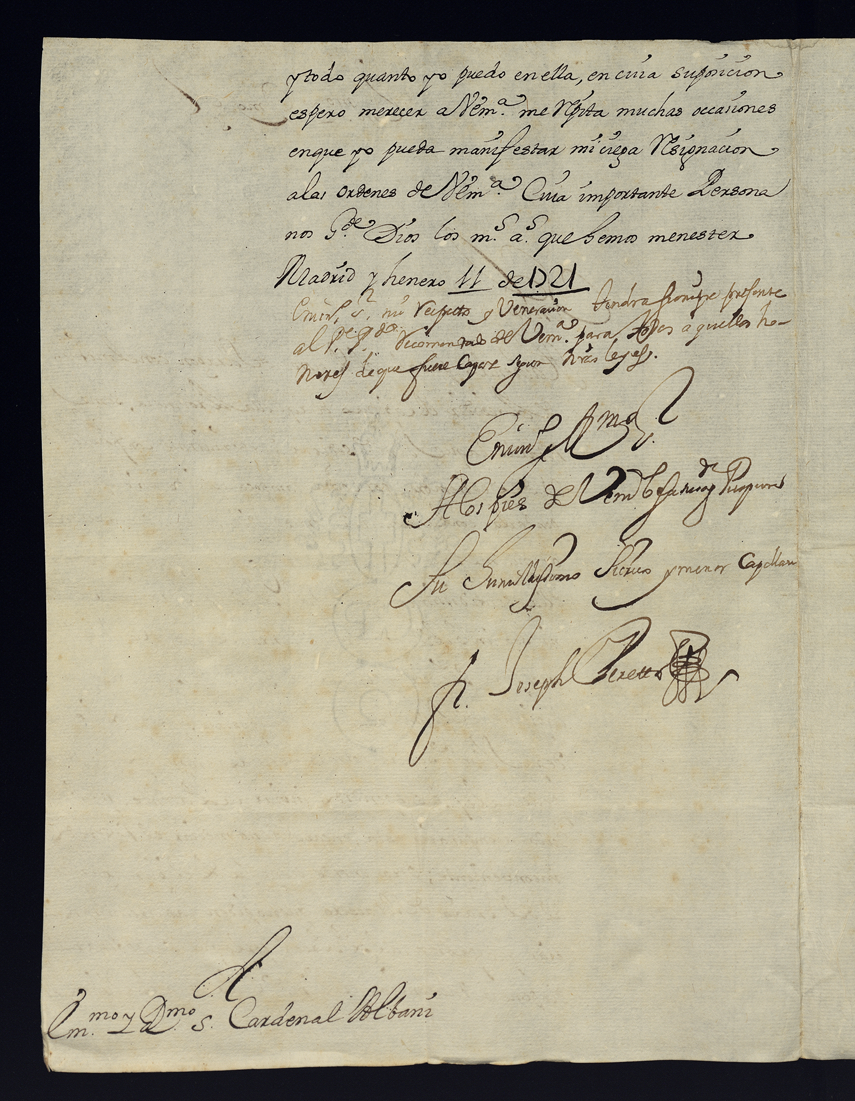 y todo quanto yo puedo en ella, en cuia suposicion
espero merecer a V em.ª me Rp̃ita muchas occasiones
en que yo pueda manifestar mi ciega Resignacion
a las ordenes de V em.ª Cuia importante Persona
nos G.de Dios los m.s a.s que hemos menester
Madrid y henero 11 de 1721
Emin.s s.r mi respetto y Veneracion tendra siempre presente
al Pe. recomendado de V em.ª para todos aquellos ho-
nores de que fuere Capaz segun nr̃as leyes.
A los pies de V em
Su humildissimo Sieruo y menor Capellan
fr. Joseph Pereto
A.
Em.mo y R.mo S. Cardenal Albani